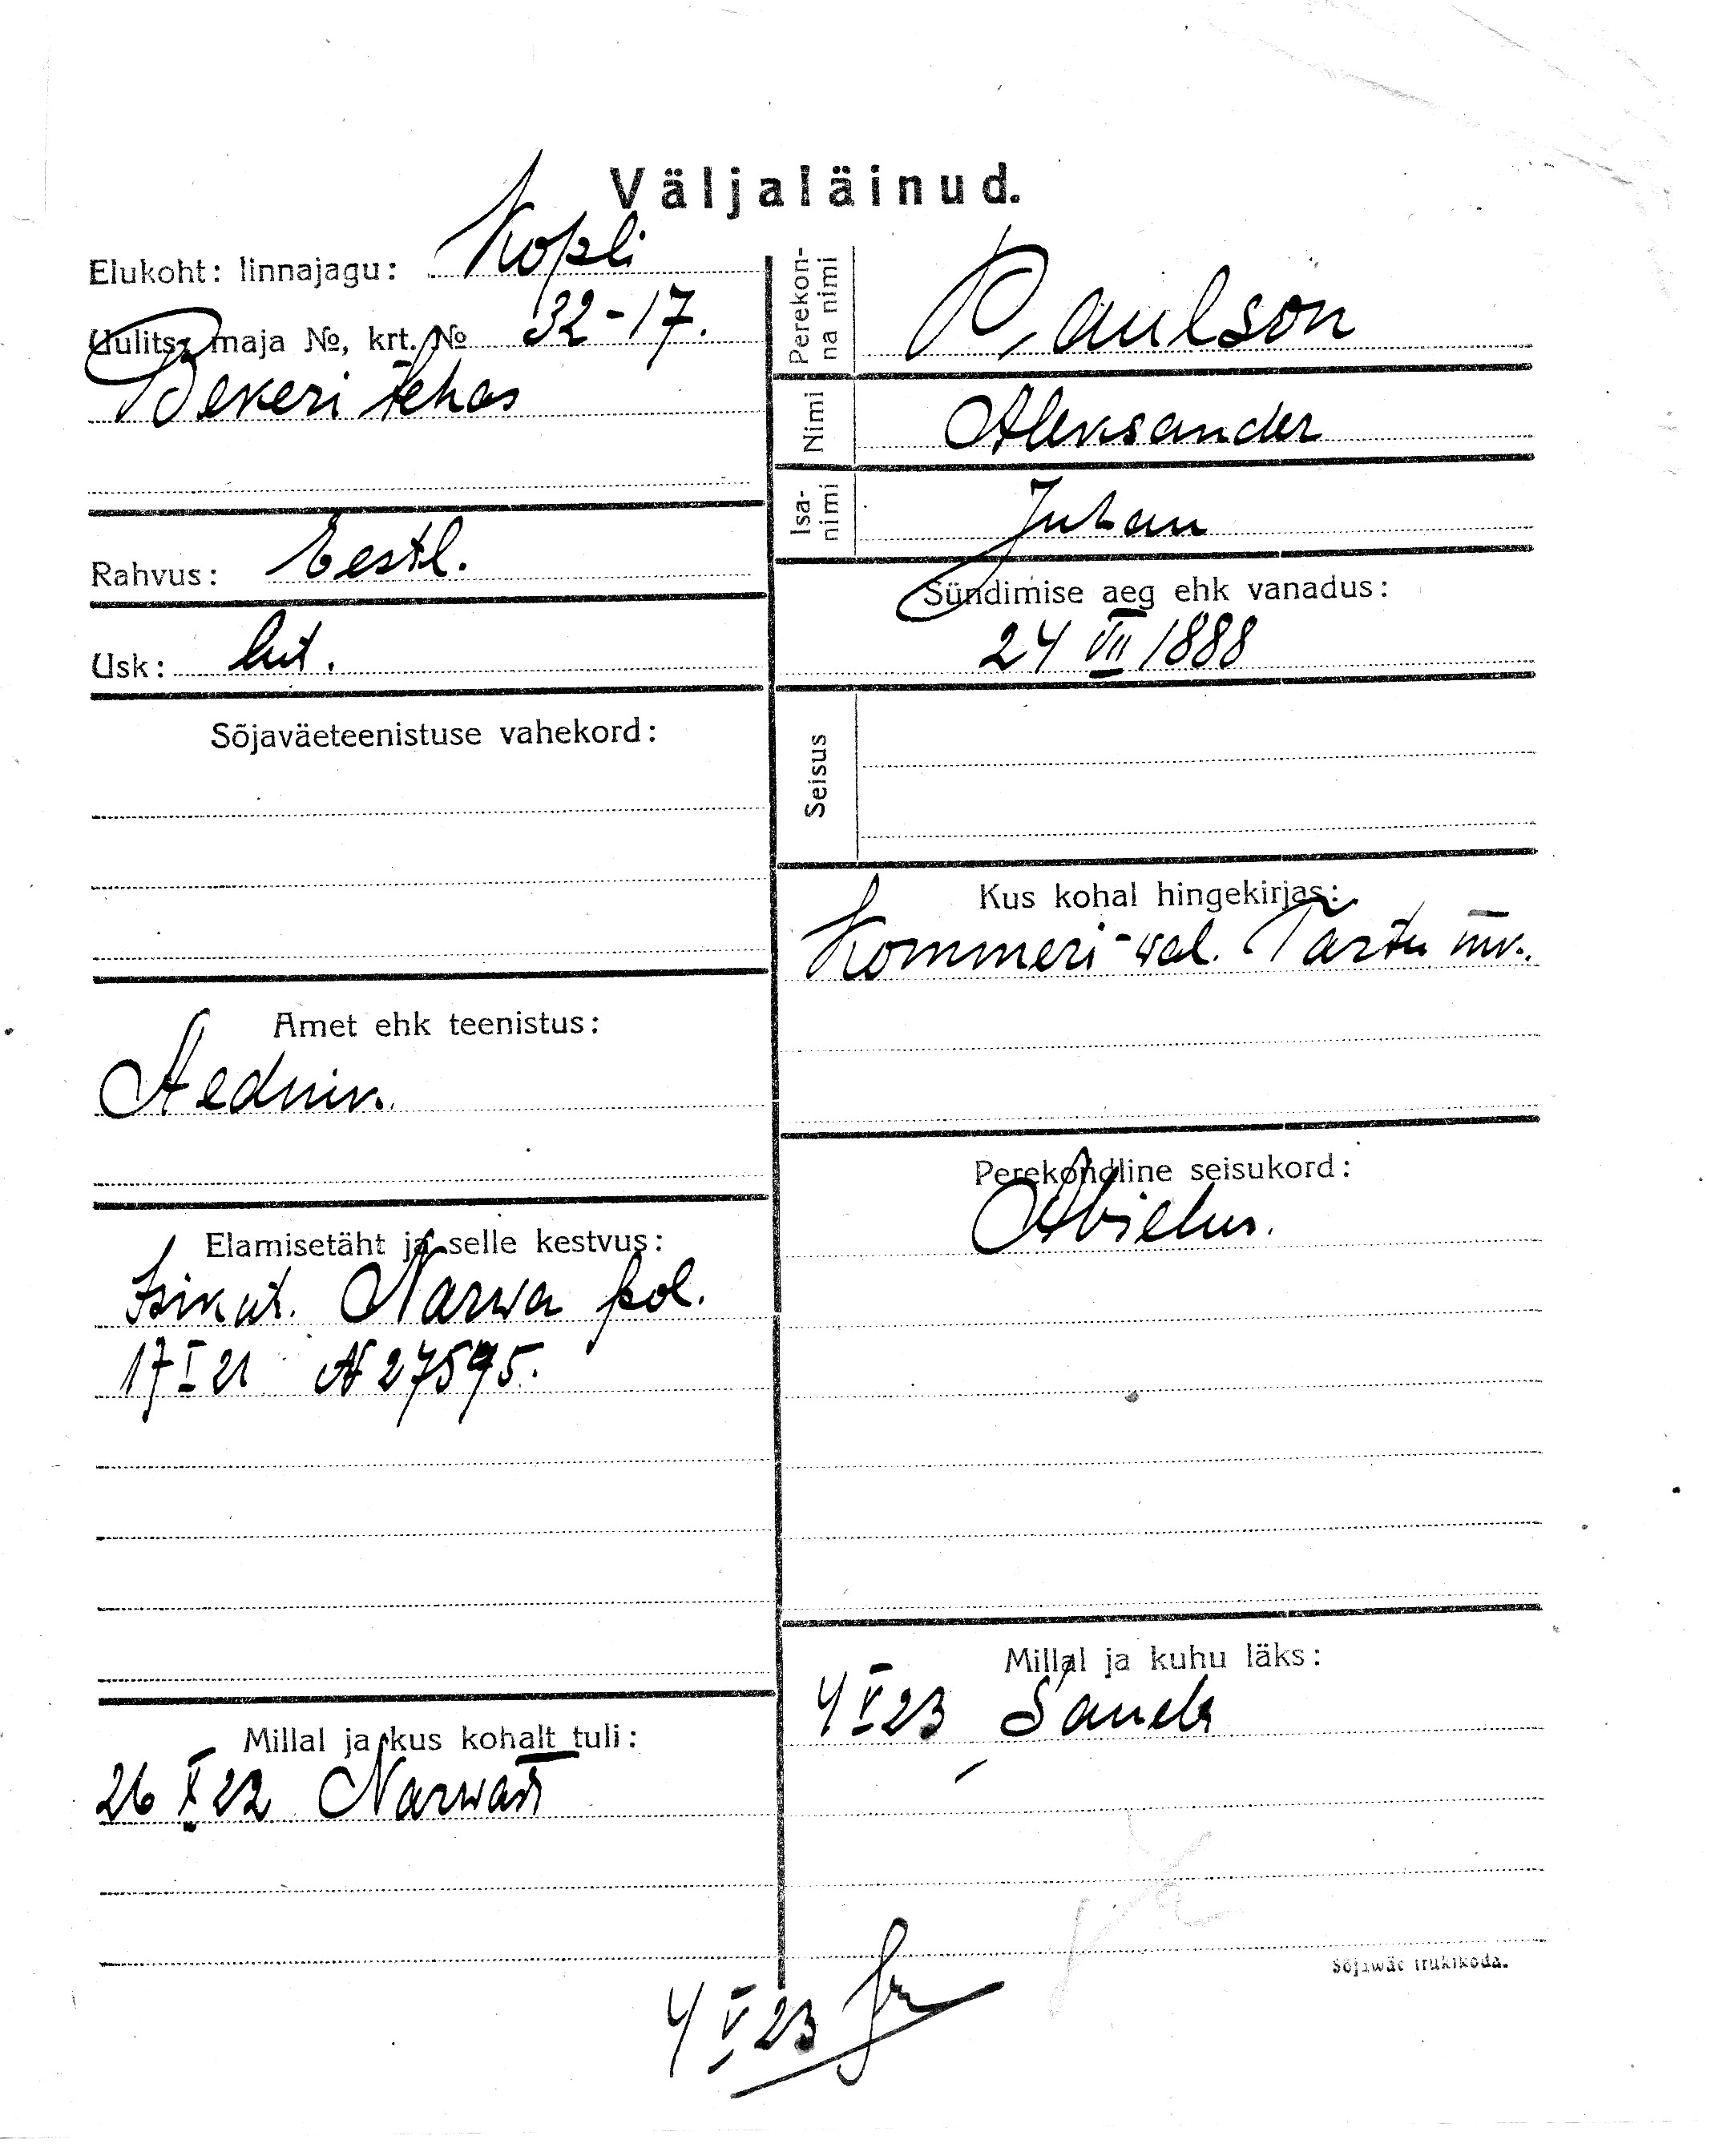 Väljaläinud.
Elukoht: linnajagu: Kopli
Uulits, maja №, krt. № 32-17.
Bekeri tehas
Rahvus: Eestl.
Usk: lut.
Sõjaväeteenistuse vahekord:
Amet ehk teenistus:
Aednik.
Elamisetäht ja selle kestvus:
Isikut. Narwa pol.
17 I 21 № 27595.
Millal ja kus kohalt tuli:
26 X 22 Narwast
Perekonna nimi
Paulson
Nimi
Aleksander
Isanimi
Juhan
Sündimise aeg ehk vanadus:
24 VII 1888
Seisus
Kus kohal hingekirjas:
Kommeri-wal. Tartu mk.
Perekondline seisukord:
Abielus.
Millal ja kuhu läks:
4 V 23
Sõjawäe trükikoda.
4 V 23